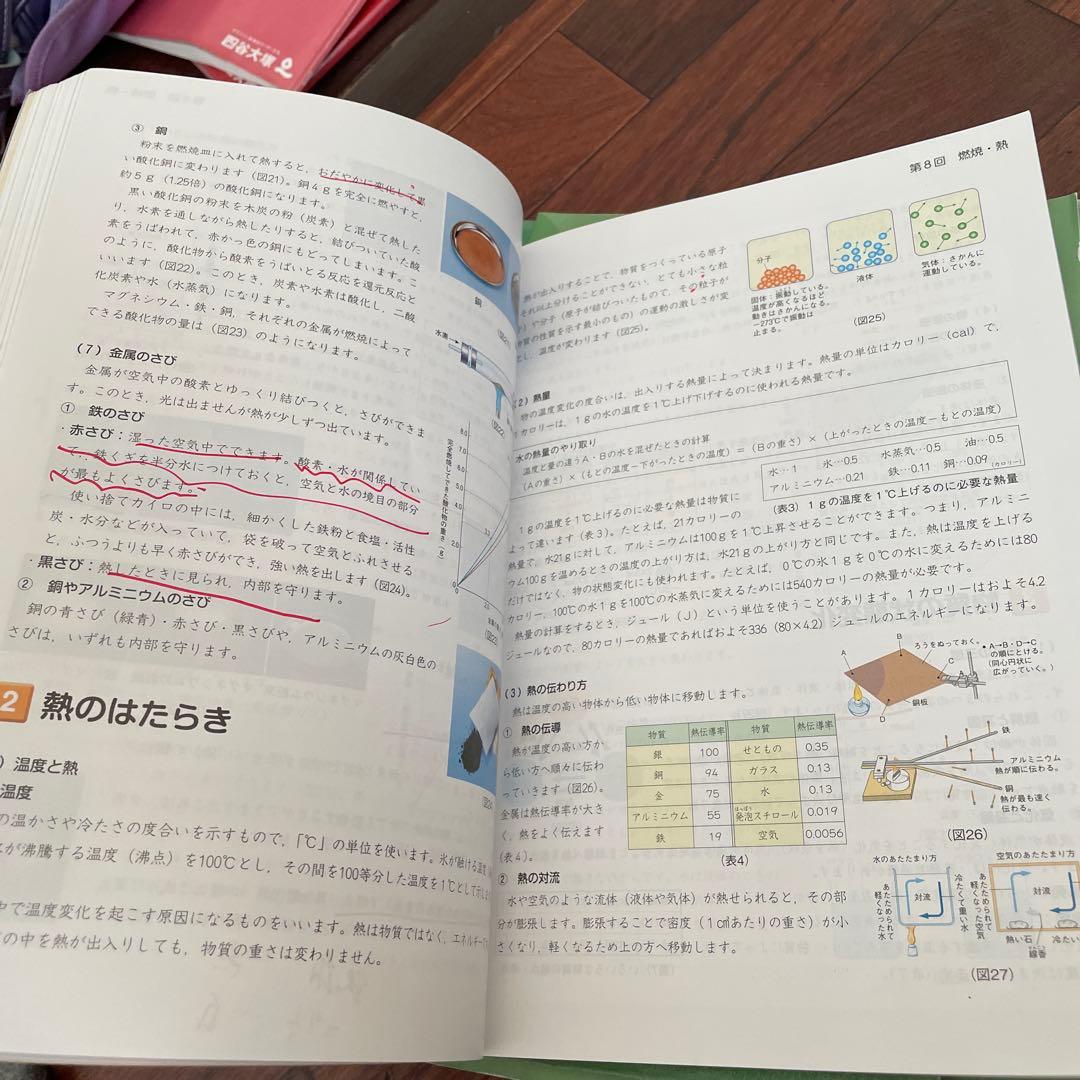 四谷大塚
③ 銅
粉末を燃焼皿に入れて熱すると，おだやかに変化して黒
い酸化銅に変わります（図21）。銅4gを完全に燃やすと，
約5g（1.25倍）の酸化銅になります。
黒い酸化銅の粉末を木炭の粉（炭素）と混ぜて熱した
り，水素を通しながら熱したりすると，結びついていた酸
素をうばわれて，赤かっ色の銅にもどってしまいます。こ
のように，酸化物から酸素をうばいとる反応を還元反応と
いいます（図22）。このとき，炭素や水素は酸化し，二酸
化炭素や水（水蒸気）になります。
マグネシウム・鉄・銅，それぞれの金属が燃焼によって
できる酸化物の量は（図23）のようになります。
銅
水素
（7）金属のさび
金属が空気中の酸素とゆっくり結びつくと，さびができま
す。このとき，光は出ませんが熱が少しずつ出ています。
① 鉄のさび
・赤さび：湿った空気中でできます。酸素・水が関係してい
て，鉄くぎを半分水につけておくと，空気と水の境目の部分
が最もよくさびます。
使い捨てカイロの中には，細かくした鉄粉と食塩・活性
炭・水分などが入っていて，袋を破って空気とふれさせる
と，ふつうよりも早く赤さびができ，強い熱を出します（図24）。
・黒さび：熱したときに見られ，内部を守ります。
② 銅やアルミニウムのさび
銅の青さび（緑青）・赤さび・黒さびや，アルミニウムの灰白色の
さびは，いずれも内部を守ります。
完全燃焼してできた酸化物の重さ（g）
8.0
7.0
6.0
5.0
4.0
2.0
0
2 熱のはたらき
）温度と熱
温度
の温かさや冷たさの度合いを示すもので，「℃」の単位を使います。氷が融ける温度
が沸騰する温度（沸点）を100℃とし，その間を100等分した温度を1℃として示し
中で温度変化を起こす原因になるものをいいます。熱は物質ではなく，エネルギー
の中を熱が出入りしても，物質の重さは変わりません。
第8回 燃焼・熱
熱が出入りすることで，物質をつくっている原子
それ以上分けることができない，とても小さな粒
や分子（原子が結びついたもので，その粒子が
物質の性質を示す最小のもの）の運動の激しさが変
とし，温度が変わります（図25）。
分子
固体：振動している。
温度が高くなるほど
動きはさかんになる。
－273℃で振動は
止まる。
液体
気体：さかんに
運動している。
（図25）
（2）熱量
物の温度変化の度合いは，出入りする熱量によって決まります。熱量の単位はカロリー（cal）で，
1カロリーは，1gの水の温度を1℃上げ下げするのに使われる熱量です。
水の熱量のやり取り
温度と量の違うA・Bの水を混ぜたときの計算
（Aの重さ）×（もとの温度－下がったときの温度）＝（Bの重さ）×（上がったときの温度－もとの温度）
1gの温度を1℃上げるのに必要な熱量は物質に
よって違います（表3）。たとえば，21カロリーの
熱量で，水21gに対して，アルミニウムは100gを1℃上昇させることができます。つまり，アルミニ
ウム100gを温めるときの温度の上がり方は，水21gの上がり方と同じです。また，熱は温度を上げる
だけではなく，物の状態変化にも使われます。たとえば，0℃の氷1gを0℃の水に変えるためには80
カロリー，100℃の水1gを100℃の水蒸気に変えるためには540カロリーの熱量が必要です。
熱量の計算をするとき，ジュール（J）という単位を使うことがあります。1カロリーはおよそ4.2
ジュールなので，80カロリーの熱量であればおよそ336（80×4.2）ジュールのエネルギーになります。
水…1 氷…0.5 水蒸気…0.5 油…0.5
アルミニウム…0.21 鉄…0.11 銅…0.09（カロリー）
（表3）1gの温度を1℃上げるのに必要な熱量
（3）熱の伝わり方
熱は温度の高い物体から低い物体に移動します。
① 熱の伝導
熱が温度の高い方か
ら低い方へ順々に伝わ
っていきます（図26）。
金属は熱伝導率が大き
く，熱をよく伝えます
（表4）。
物質 熱伝導率 物質 熱伝導率
銀 100 せともの 0.35
銅 94 ガラス 0.13
金 75 水 0.13
アルミニウム 55 発泡スチロール 0.019
鉄 19 空気 0.0056
（表4）
A
B
C
D
ろうをぬっておく。
銅板
● A→B・D→C
の順にとける。
（同心円状に
広がっていく。）
鉄
アルミニウム
熱が順に伝わる。
銅
熱が最も速く
伝わる。
（図26）
② 熱の対流
水や空気のような流体（液体や気体）が熱せられると，その部
分が膨張します。膨張することで密度（1㎤あたりの重さ）が小
さくなり，軽くなるため上の方へ移動します。
水のあたたまり方
あたためられて
軽くなった水
対流
冷たくて重い水
空気のあたたまり方
あたためられて
軽くなった空気
対流
熱い石
線香
冷たい
（図27）